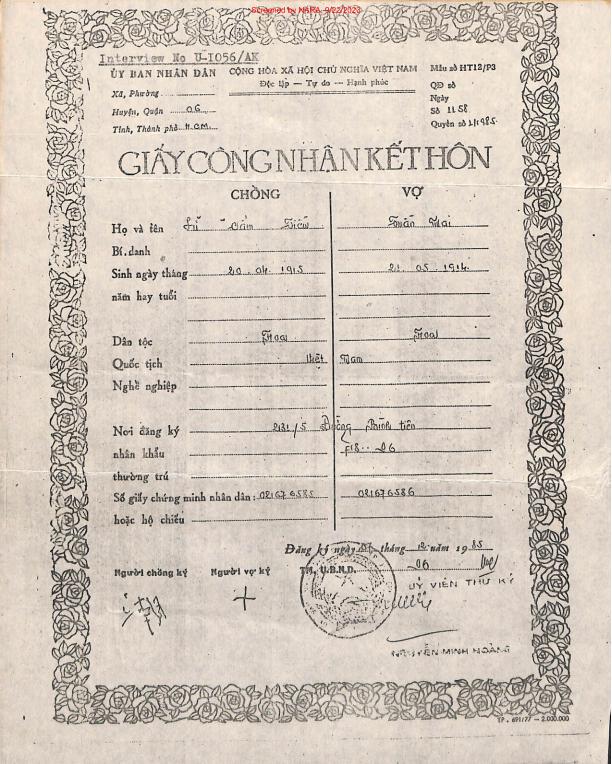 Screened by NARA, 9/22/2023
Interview No U-1056/AK
ỦY BAN NHÂN DÂN
Xã, Phường
Huyện, Quận 06
Tỉnh, Thành phố H.CM
CỘNG HÒA XÃ HỘI CHỦ NGHĨA VIỆT NAM
Độc lập — Tự do — Hạnh phúc
Mẫu số HT12/P3
QĐ số
Ngày
Số 1158
Quyển số 21985
GIẤY CÔNG NHẬN KẾT HÔN
CHỒNG VỢ
Họ và tên Lữ Cẩm Mai
Bí danh
Sinh ngày tháng 20.04.1915 21.05.1914
năm hay tuổi
Dân tộc Hoa Hoa
Quốc tịch Việt Nam
Nghề nghiệp
Nơi đăng ký 231/5 Đường Bình tiên
nhân khẩu F18 - Q6
thường trú
Số giấy chứng minh nhân dân: 021676585 021676586
hoặc hộ chiếu
Đăng ký ngày tháng 12 năm 1985
Người chồng ký Người vợ ký TM. U.B.N.D. Q6
ỦY VIÊN THƯ KÝ
+
NGUYỄN MINH HOÀNG
TP. 691/77 - 2.000.000